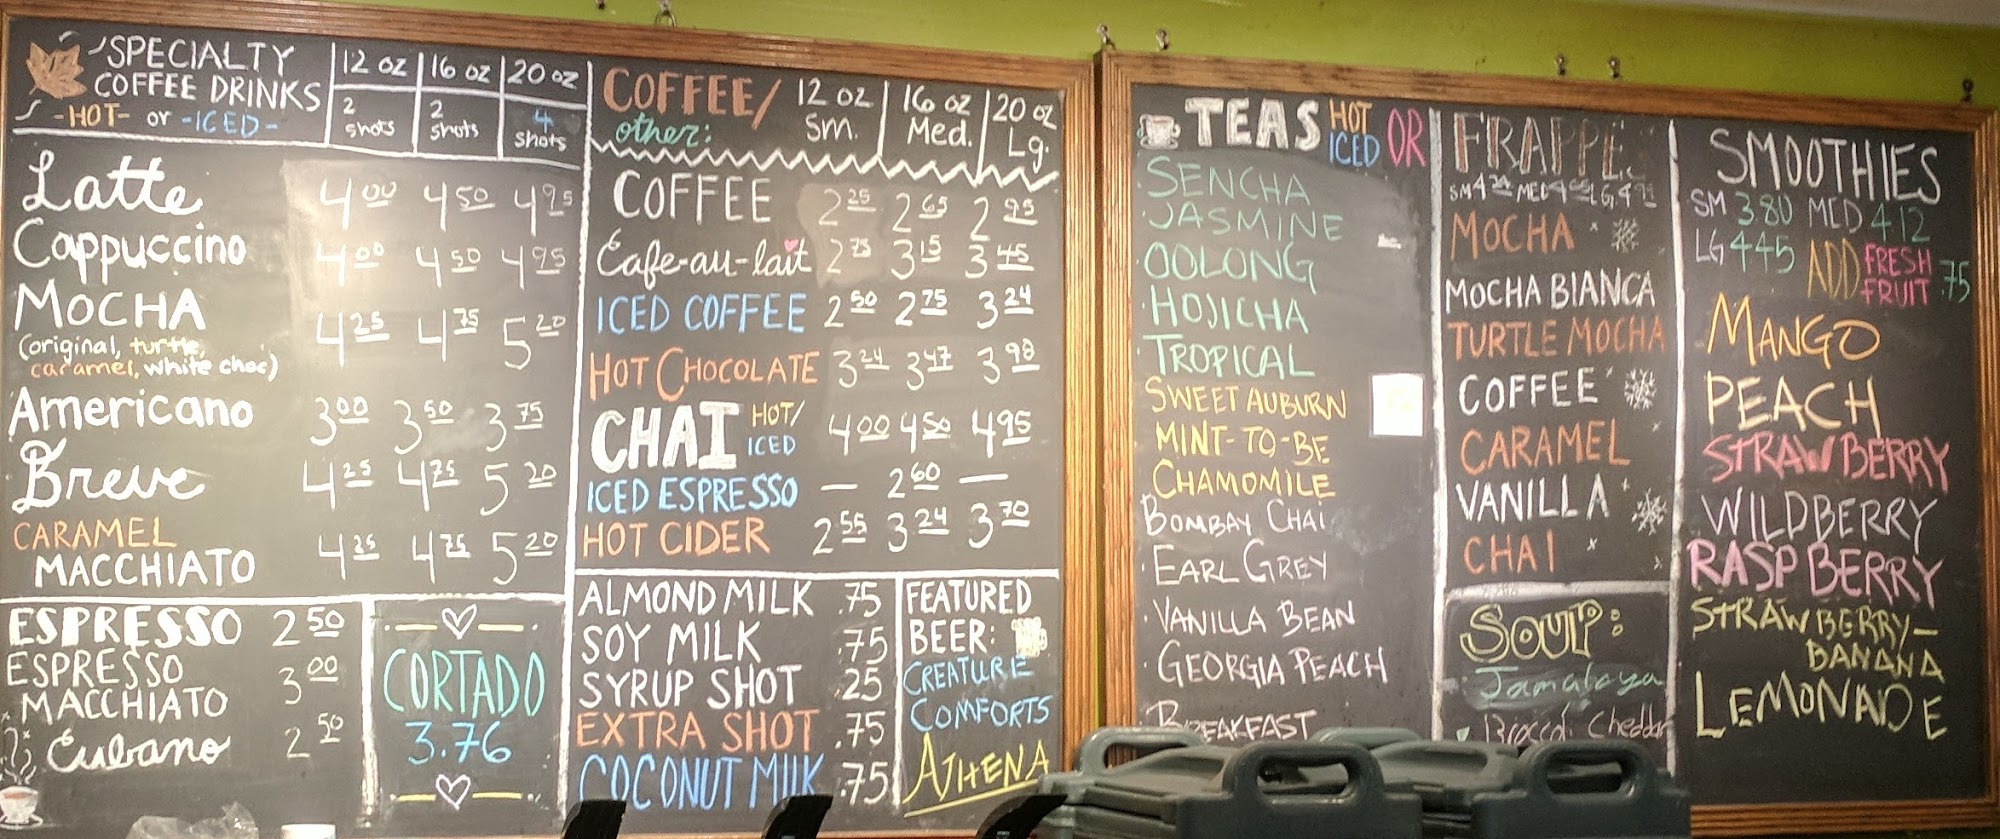 SPECIALTY COFFEE DRINKS
-HOT- or -ICED-
12 oz 16 oz 20 oz
2 shots 2 shots 4 shots
Latte 4.00 4.50 4.95
Cappuccino 4.00 4.50 4.95
MOCHA 4.25 4.75 5.20
(original, turtle,
caramel, white choc)
Americano 3.00 3.50 3.75
Breve 4.25 4.75 5.20
CARAMEL
MACCHIATO 4.25 4.75 5.20
ESPRESSO 2.50
ESPRESSO
MACCHIATO 3.00
Cubano 2.50
CORTADO
3.76
COFFEE/
other:
12 oz Sm. 16 oz Med. 20 oz Lg.
COFFEE 2.25 2.65 2.95
Cafe-au-lait 2.75 3.15 3.45
ICED COFFEE 2.50 2.75 3.24
HOT CHOCOLATE 3.24 3.47 3.98
CHAI HOT/ICED 4.00 4.50 4.95
ICED ESPRESSO — 2.60 —
HOT CIDER 2.55 3.24 3.70
ALMOND MILK .75
SOY MILK .75
SYRUP SHOT .25
EXTRA SHOT .75
COCONUT MILK .75
FEATURED
BEER:
CREATURE
COMFORTS
ATHENA
TEAS HOT OR ICED
SENCHA
JASMINE
OOLONG
HOJICHA
TROPICAL
SWEET AUBURN
MINT-TO-BE
CHAMOMILE
BOMBAY CHAI
EARL GREY
VANILLA BEAN
GEORGIA PEACH
BREAKFAST
FRAPPES
MOCHA
MOCHA BIANCA
TURTLE MOCHA
COFFEE
CARAMEL
VANILLA
CHAI
SOUP:
Jamabaya
Broccoli Cheddar
SMOOTHIES
SM 3.80 MED 4.12
LG 4.45 ADD FRESH FRUIT .75
MANGO
PEACH
STRAWBERRY
WILDBERRY
RASPBERRY
STRAWBERRY-
BANANA
LEMONADE